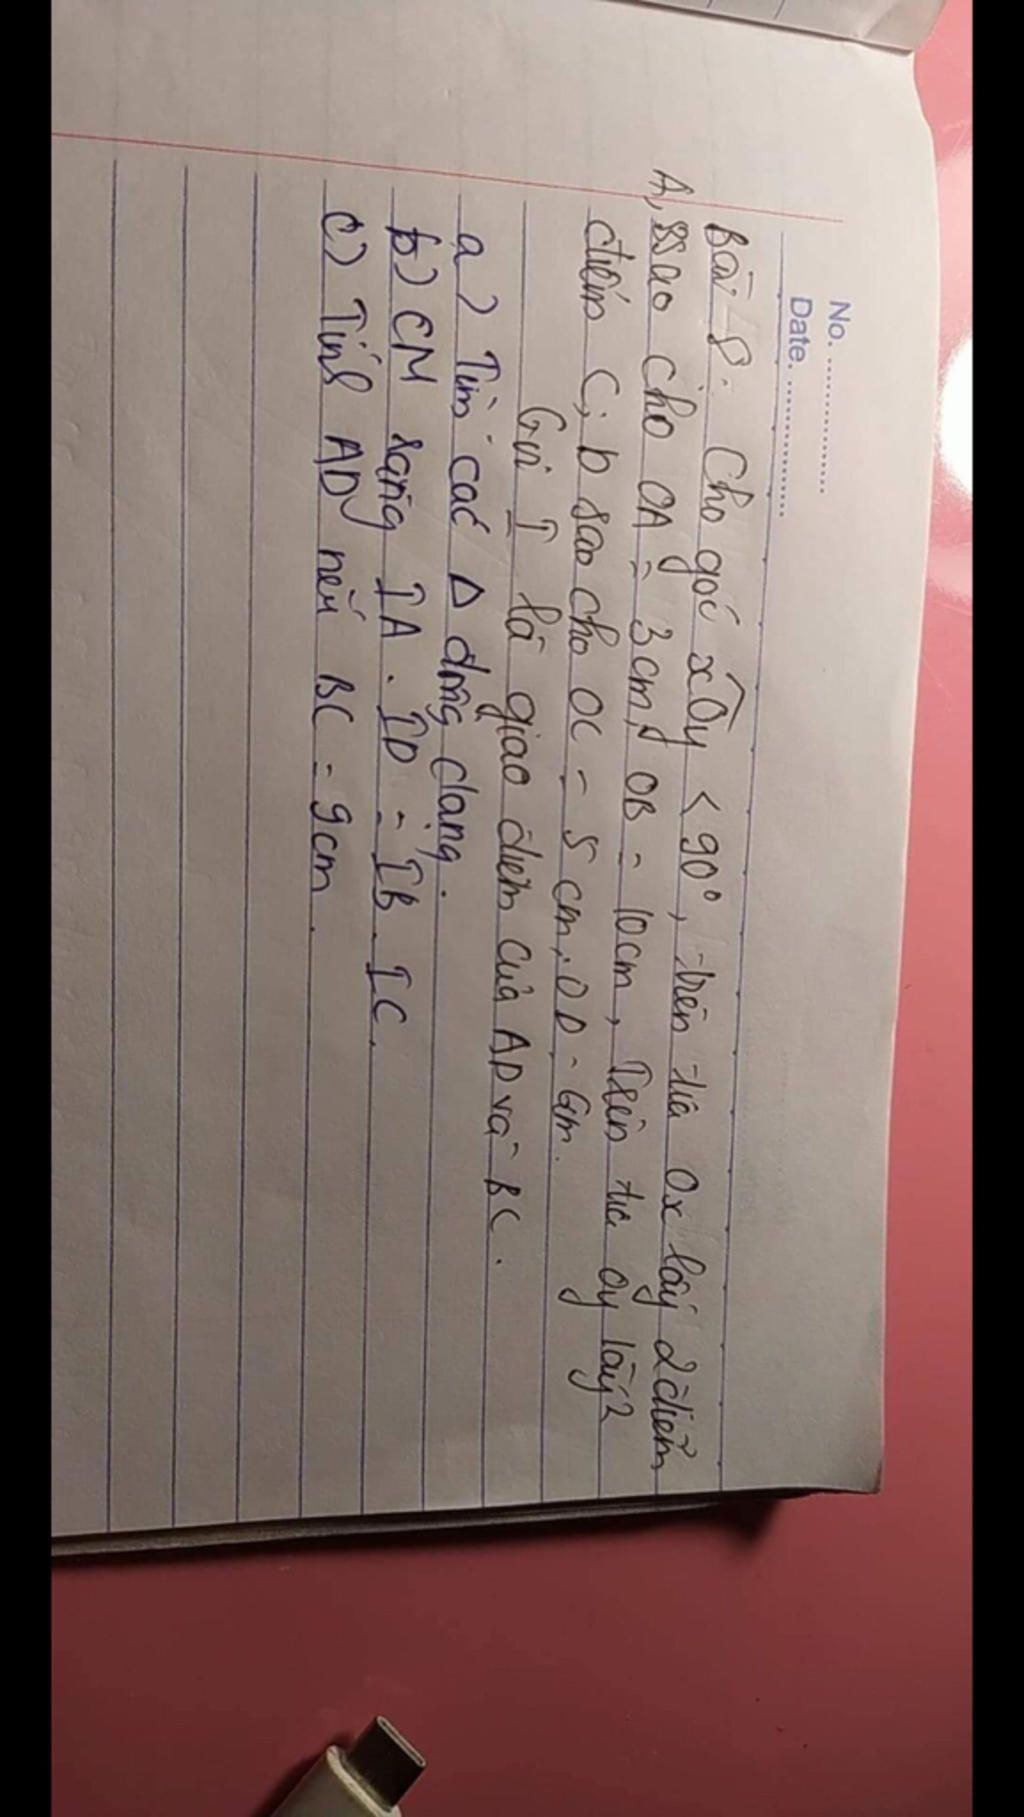 No. ....................
Date. ....................
Bài 8: Cho góc xOy < 90°, trên tia Ox lấy 2 điểm
A, B sao cho OA = 3cm, OB = 10cm, Trên tia Oy lấy 2
điểm C; D sao cho OC = 5 cm, OD = 6cm.
Gọi I là giao điểm của AD và BC.
a) Tìm các Δ đồng dạng.
b) CM rằng IA . ID = IB . IC.
c) Tính AD nếu BC = 9cm.